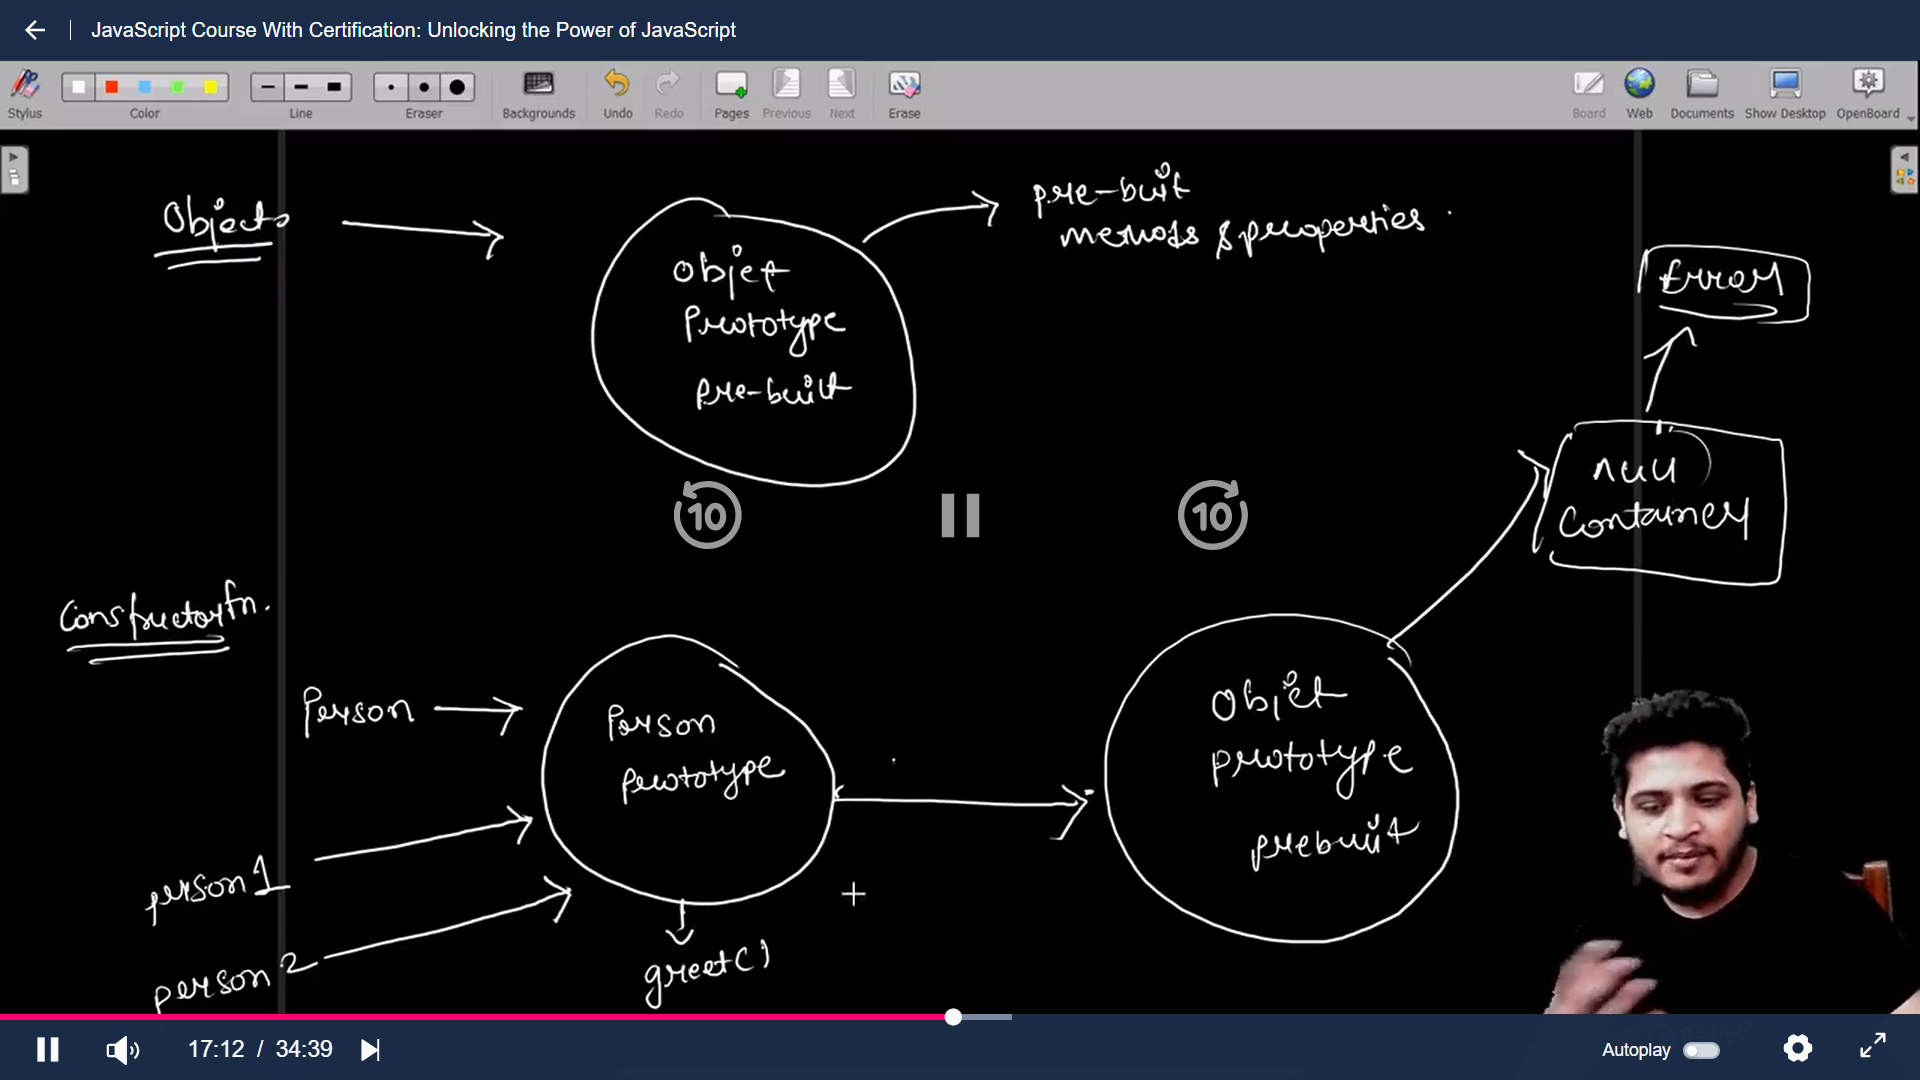 JavaScript Course With Certification: Unlocking the Power of JavaScript
Stylus
Color
Line
Eraser
Backgrounds
Undo
Redo
Pages
Previous
Next
Erase
Board
Web
Documents
Show Desktop
OpenBoard
Objects
Objet
Prototype
pre-built
pre-built
methods & properties
Error
null
container
10
10
Constructor fn.
Person
Person
prototype
Objet
prototype
prebuilt
person 1
person 2
greet()
17:12 / 34:39
Autoplay